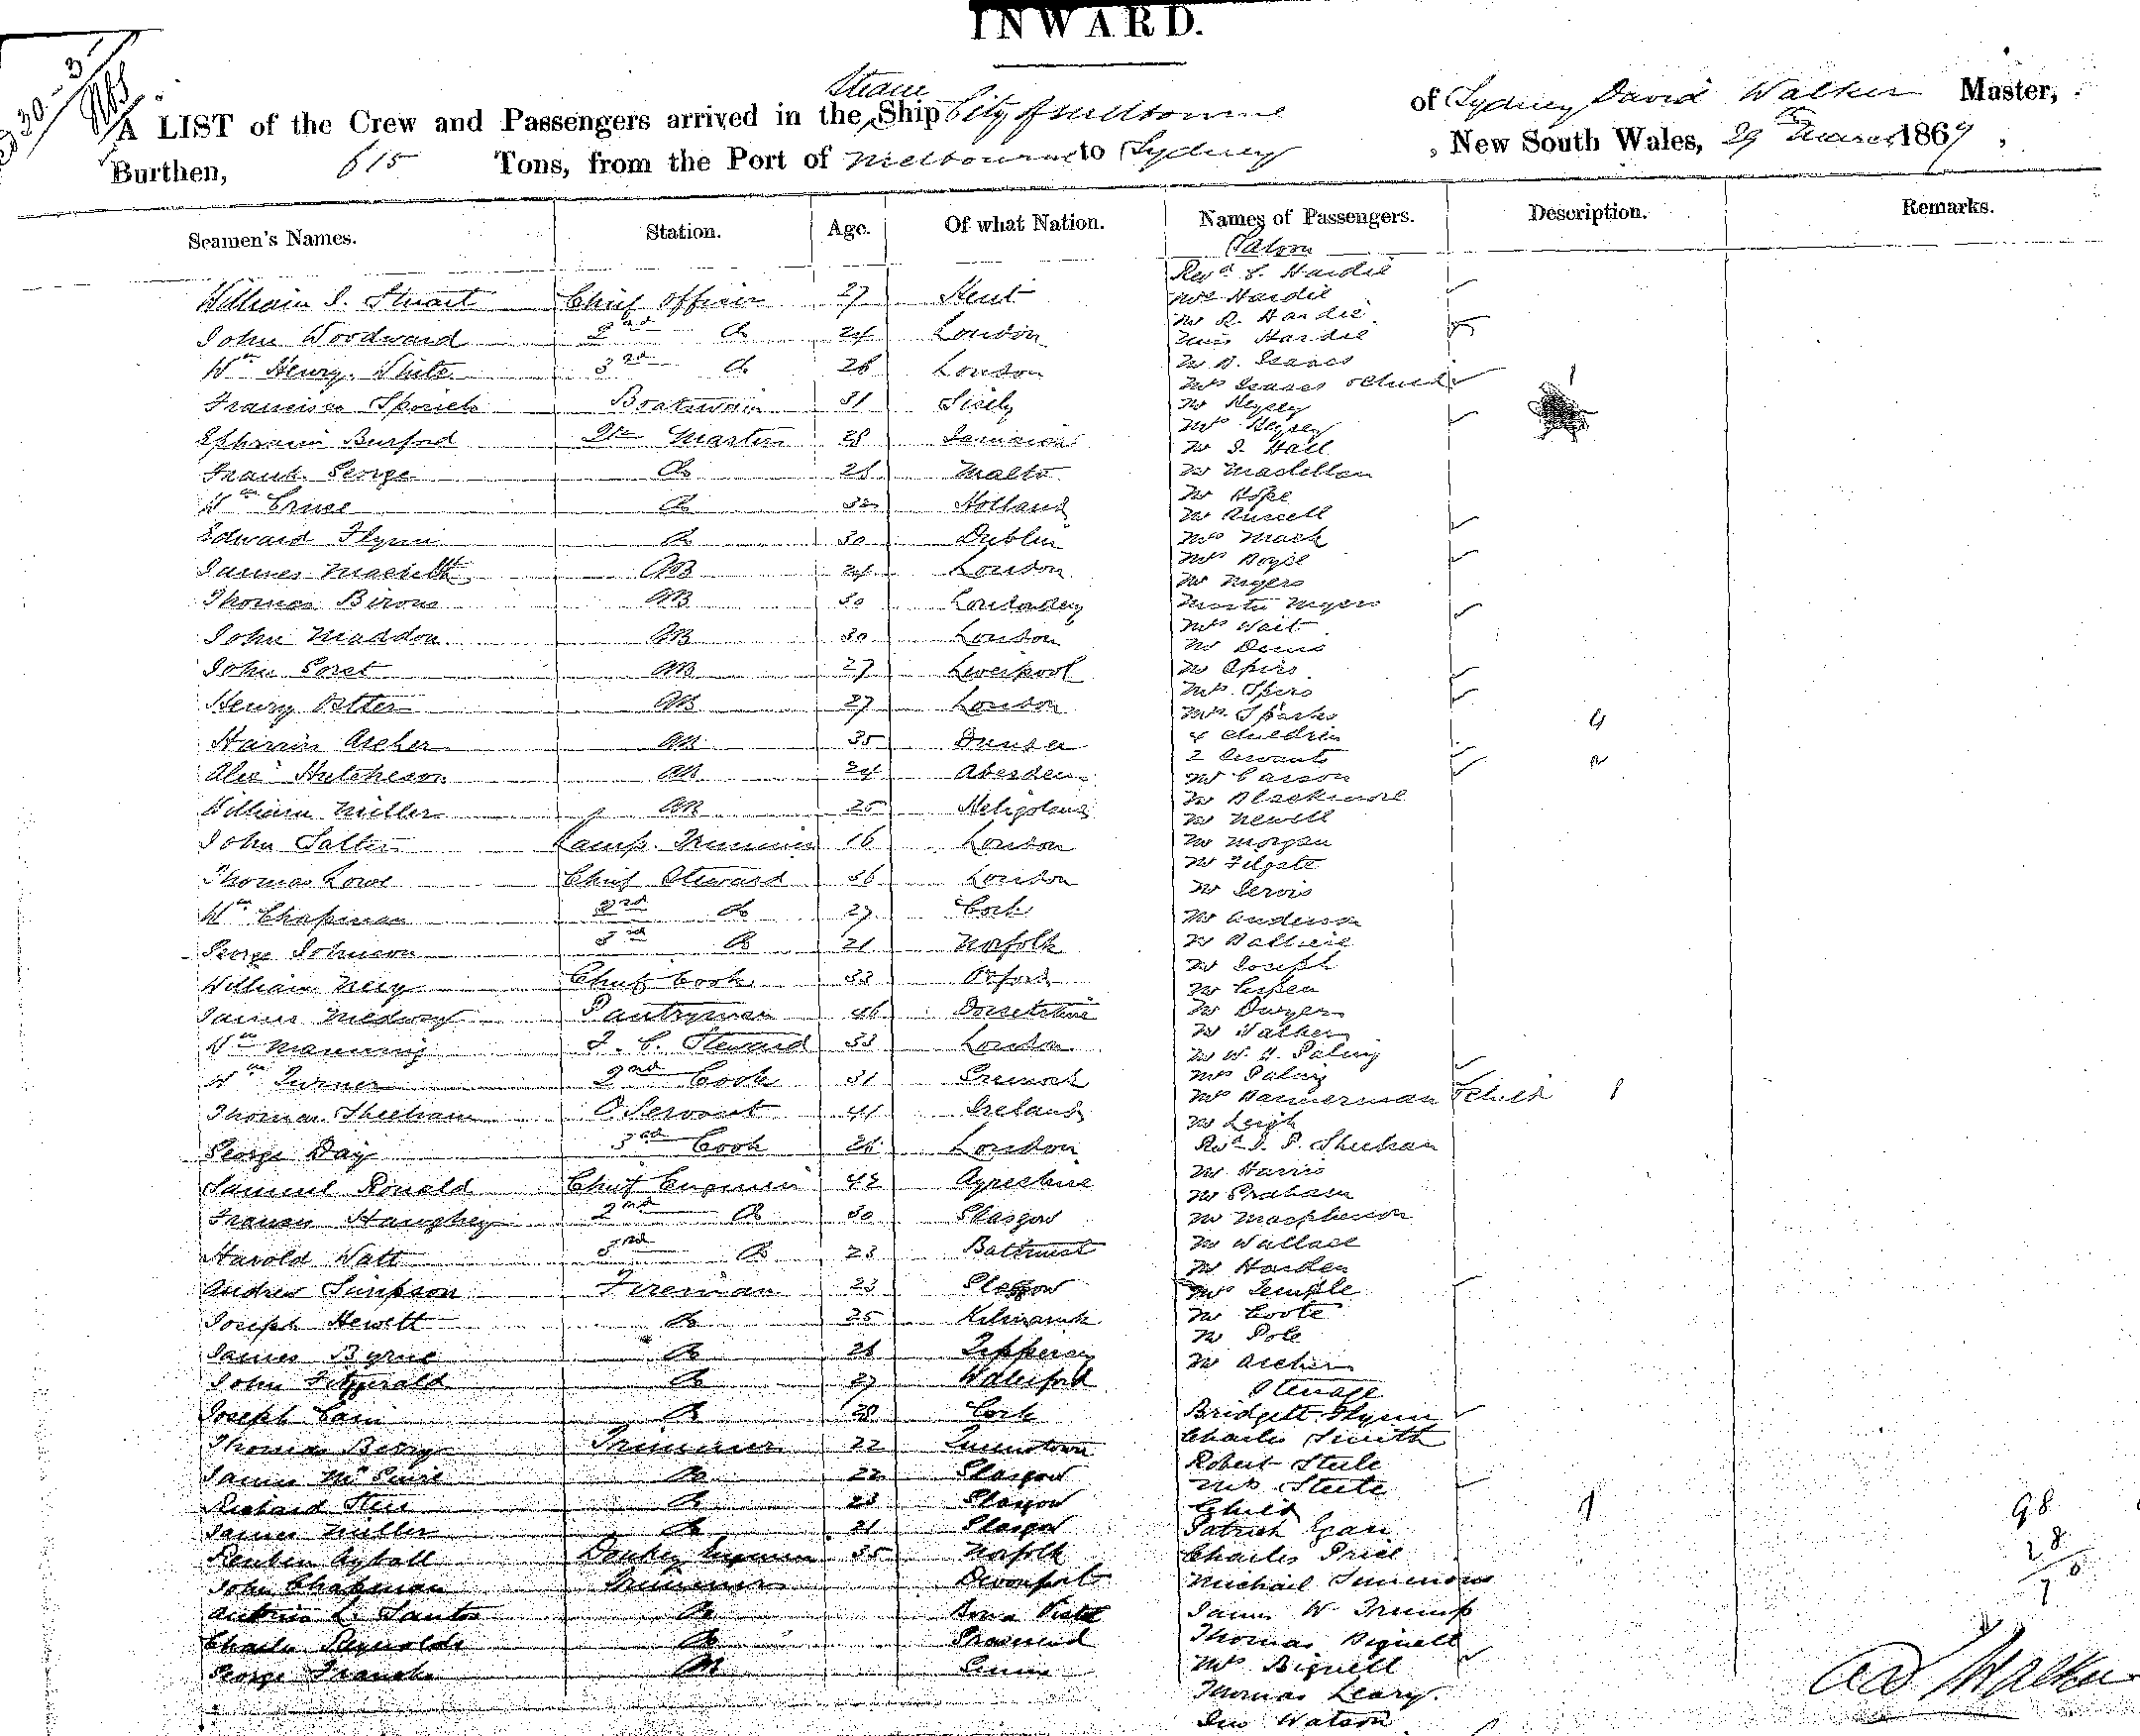 INWARD.
A LIST of the Crew and Passengers arrived in the Steam Ship City of Melbourne of Sydney David Walker Master,
Burthen, 615 Tons, from the Port of Melbourne to Sydney, New South Wales, 29 March 1869,
Seamen's Names. Station. Age. Of what Nation. Names of Passengers. Description. Remarks.
Saloon
Revd Hardie
William J. Stuart Chief Officer 27 Kent
Mrs Hardie
Mr R. Hardie
John Woodward 2nd Do 24 London
Miss Hardie
Wm Henry White 3rd Do 26 London
Mr Isaacs
Mrs Isaacs
Boatswain 31 Sicily
Mr Heysey
Mrs Heysey
Ephraim Burford Qr Master 28 Jamaica
Mr J. Hall
Frank George Do Malta
Mr Maclellan
Mr Hope
Wm Do Holland
Mr Russell
Edward Flynn Do 30 Dublin
Mrs Mack
Mrs Boyce
James AB 24 London
Mr Myers
Thomas AB 30
Master Myers
John Maddon AB 30 London
Mrs Wait
Mr
John AB 27 Liverpool
Mr Spiro
Mrs Spiro
Henry Potter AB 27 London
Mrs Sparks 4
Harris Archer AB 35 Dundee
4 Children
2 Servants 2
Alexr Hutcheson AB 24 Aberdeen
Mr Carson
Mr Blackmore
William Miller AB 25 Heligoland
Mr Newell
John Salter Lamp Trimmer 16 London
Mr Morgan
Mr Filgate
Thomas Lowe Chief Steward 36 London
Mr Servis
Wm Chapman 2nd Do 27 Cork
Mr Anderson
George Johnson 3rd Do 21 Norfolk
Mr
Mr Joseph
William Chief Cook 33 Oxford
Mr
James Medway Pantryman 46 Dorsetshire
Mr Dwyer
Mr Walker
Wm Manning F. C. Steward 33 London
Mr W. H. Paling
Wm Turner 2nd Cook 31
Mrs Paling
Thomas Sheehan O Servant 41 Ireland
Mrs Bannerman & child 1
Mr Leigh
George Day 3rd Cook London
Revd J. P. Sheehan
Mr Harris
Samuel Ronald Chief Engineer 42 Ayreshire
Mr Graham
Francis Haughey 2nd Do 30 Glasgow
Mr Macpherson
Harold Watt 3rd Do 23 Bathurst
Mr Wallace
Mr Harden
Andrew Simpson Fireman 23 Glasgow
Mrs Temple
Joseph Hewett Do 25
Mr Coote
Mr Pole
James Byrne Do
Mr Archer
John Fitzgerald Do 27 Waterford
Steerage
Joseph Cain Do 28 Cork
Bridgett Flynn
Thomas Berry Trimmer 22 Queenstown
Charles Smith
Robert Steele
James McGuire Do 22 Glasgow
Mrs Steele
Richard Do 23 Glasgow
Child 1
James Miller Do 21 Glasgow
Patrick Egan
Reuben Donkey Engineer 35 Norfolk
Charles Price
John Chapman Trimmer Devonport
Michael Simmons
Antonio L. Santos Do Bona Vista
James W. Trump
Charles Reynolds Do Gravesend
Thomas Bignell
George
Mrs Bignell
Thomas Leary
Jno Watson
98
Walker